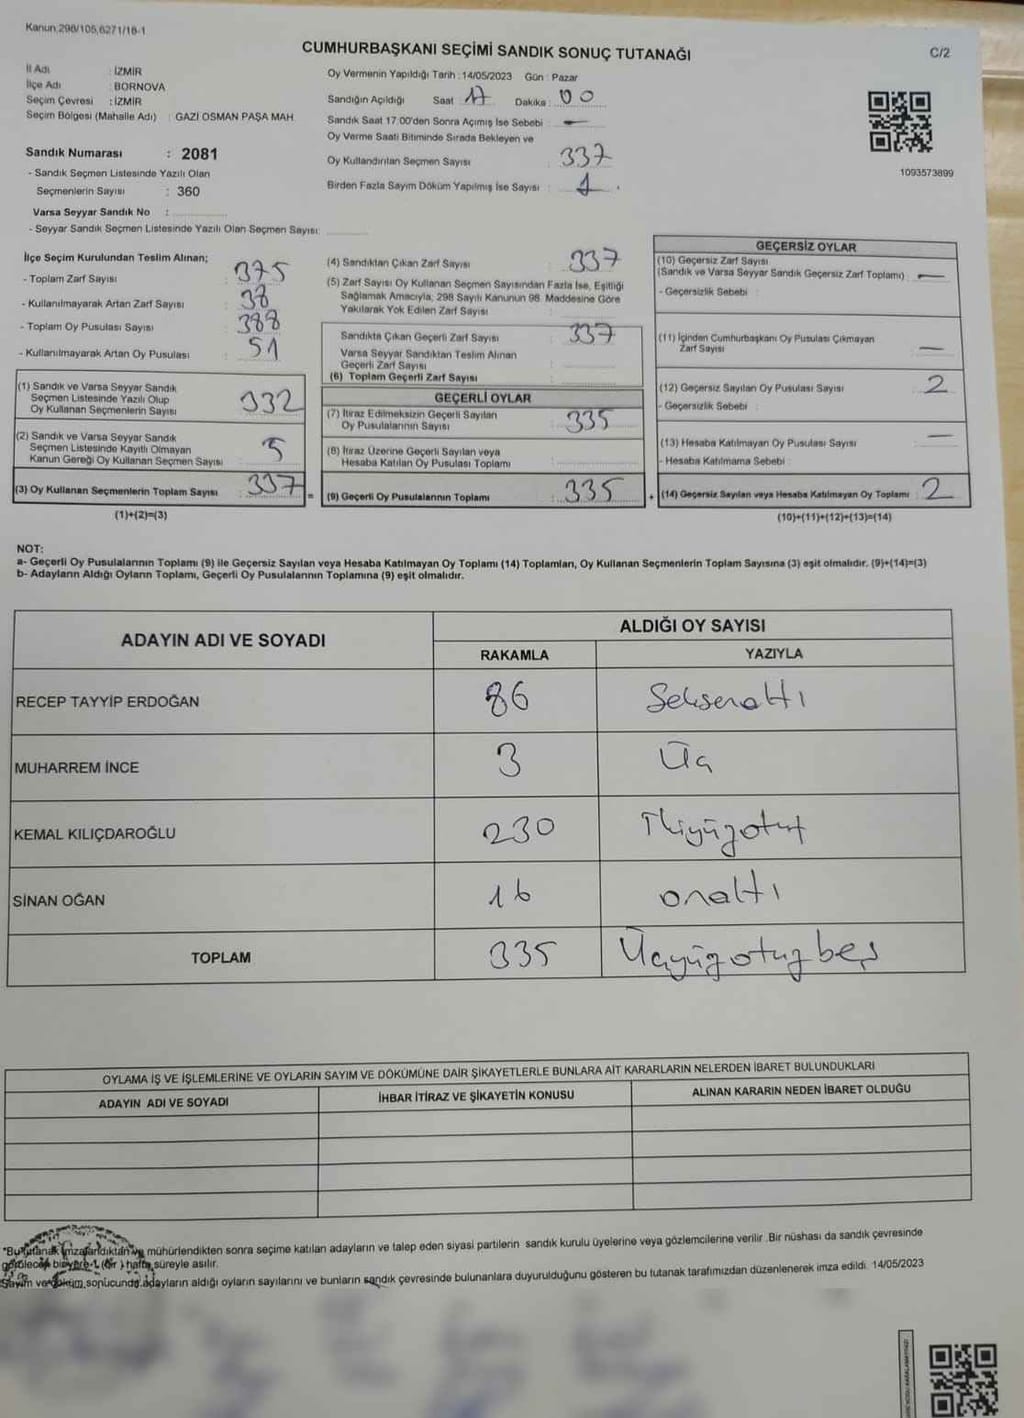 Kanun 298/105,6271/16-1
CUMHURBAŞKANI SEÇİMİ SANDIK SONUÇ TUTANAĞI
C/2
İl Adı : İZMİR
İlçe Adı : BORNOVA
Seçim Çevresi : İZMİR
Seçim Bölgesi (Mahalle Adı) : GAZİ OSMAN PAŞA MAH.
Sandık Numarası : 2081
- Sandık Seçmen Listesinde Yazılı Olan
Seçmenlerin Sayısı : 360
Varsa Seyyar Sandık No :
- Seyyar Sandık Seçmen Listesinde Yazılı Olan Seçmen Sayısı:
Oy Vermenin Yapıldığı Tarih : 14/05/2023 Gün : Pazar
Sandığın Açıldığı Saat : 17 Dakika : 00
Sandık Saat 17.00'den Sonra Açımış İse Sebebi : —
Oy Verme Saati Bitiminde Sırada Bekleyen ve
Oy Kullandırılan Seçmen Sayısı : 337
Birden Fazla Sayım Döküm Yapılmış İse Sayısı : 1
1093573899
İlçe Seçim Kurulundan Teslim Alınan;
- Toplam Zarf Sayısı : 375
- Kullanılmayarak Artan Zarf Sayısı : 38
- Toplam Oy Pusulası Sayısı : 388
- Kullanılmayarak Artan Oy Pusulası : 51
(1) Sandık ve Varsa Seyyar Sandık
Seçmen Listesinde Yazılı Olup
Oy Kullanan Seçmenlerin Sayısı : 332
(2) Sandık ve Varsa Seyyar Sandık
Seçmen Listesinde Kayıtlı Olmayan
Kanun Gereği Oy Kullanan Seçmen Sayısı : 5
(3) Oy Kullanan Seçmenlerin Toplam Sayısı : 337 =
(1)+(2)=(3)
(4) Sandıktan Çıkan Zarf Sayısı : 337
(5) Zarf Sayısı Oy Kullanan Seçmen Sayısından Fazla İse, Eşitliği
Sağlamak Amacıyla, 298 Sayılı Kanunun 98. Maddesine Göre
Yakılarak Yok Edilen Zarf Sayısı :
Sandıkta Çıkan Geçerli Zarf Sayısı : 337
Varsa Seyyar Sandıktan Teslim Alınan
Geçerli Zarf Sayısı :
(6) Toplam Geçerli Zarf Sayısı :
GEÇERLİ OYLAR
(7) İtiraz Edilmeksizin Geçerli Sayılan
Oy Pusulalarının Sayısı : 335
(8) İtiraz Üzerine Geçerli Sayılan veya
Hesaba Katılan Oy Pusulası Toplamı :
(9) Geçerli Oy Pusulalarının Toplamı : 335 +
GEÇERSİZ OYLAR
(10) Geçersiz Zarf Sayısı
(Sandık ve Varsa Seyyar Sandık Geçersiz Zarf Toplamı) : —
- Geçersizlik Sebebi :
(11) İçinden Cumhurbaşkanı Oy Pusulası Çıkmayan
Zarf Sayısı : —
(12) Geçersiz Sayılan Oy Pusulası Sayısı : 2
- Geçersizlik Sebebi :
(13) Hesaba Katılmayan Oy Pusulası Sayısı : —
- Hesaba Katılmama Sebebi :
(14) Geçersiz Sayılan veya Hesaba Katılmayan Oy Toplamı : 2
(10)+(11)+(12)+(13)=(14)
NOT:
a- Geçerli Oy Pusulalarının Toplamı (9) ile Geçersiz Sayılan veya Hesaba Katılmayan Oy Toplamı (14) Toplamları, Oy Kullanan Seçmenlerin Toplam Sayısına (3) eşit olmalıdır. (9)+(14)=(3)
b- Adayların Aldığı Oyların Toplamı, Geçerli Oy Pusulalarının Toplamına (9) eşit olmalıdır.
ADAYIN ADI VE SOYADI
ALDIĞI OY SAYISI
RAKAMLA YAZIYLA
RECEP TAYYİP ERDOĞAN 86 Seksenaltı
MUHARREM İNCE 3 Üç
KEMAL KILIÇDAROĞLU 230 İkiyüzotuz
SİNAN OĞAN 16 onaltı
TOPLAM 335 Üçyüzotuzbeş
OYLAMA İŞ VE İŞLEMLERİNE VE OYLARIN SAYIM VE DÖKÜMÜNE DAİR ŞİKAYETLERLE BUNLARA AİT KARARLARIN NELERDEN İBARET BULUNDUKLARI
ADAYIN ADI VE SOYADI İHBAR İTİRAZ VE ŞİKAYETİN KONUSU ALINAN KARARIN NEDEN İBARET OLDUĞU
*Bu tutanak imzalandıktan ve mühürlendikten sonra seçime katılan adayların ve talep eden siyasi partilerin sandık kurulu üyelerine veya gözlemcilerine verilir .Bir nüshası da sandık çevresinde
görülecek bir yere 1 (bir ) hafta süreyle asılır.
Sayım ve döküm sonucunda adayların aldığı oyların sayılarını ve bunların sandık çevresinde bulunanlara duyurulduğunu gösteren bu tutanak tarafımızdan düzenlenerek imza edildi. 14/05/2023